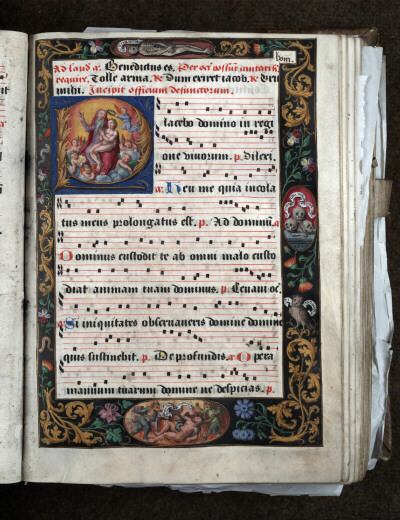 Ad laud. a. Benedictus es. Per oct.
requiret. Tolle arma. & Dum exiret iacob. &
midi. Incipit officium defunctorum.
lacebo domino in regi
one vivorum. p. Dilexi.
a. Heu me quia incola
tus meus prolongatus est. p. Ad dominū. a
Dominus custodit te ab omni malo custo
diat animam tuam dominus. p. Levavi oc.
a. Si iniquitates observaveris domine domine
quis sustinebit. p. De profundis. a. Opera
manuum tuarum domine ne despicias. p.